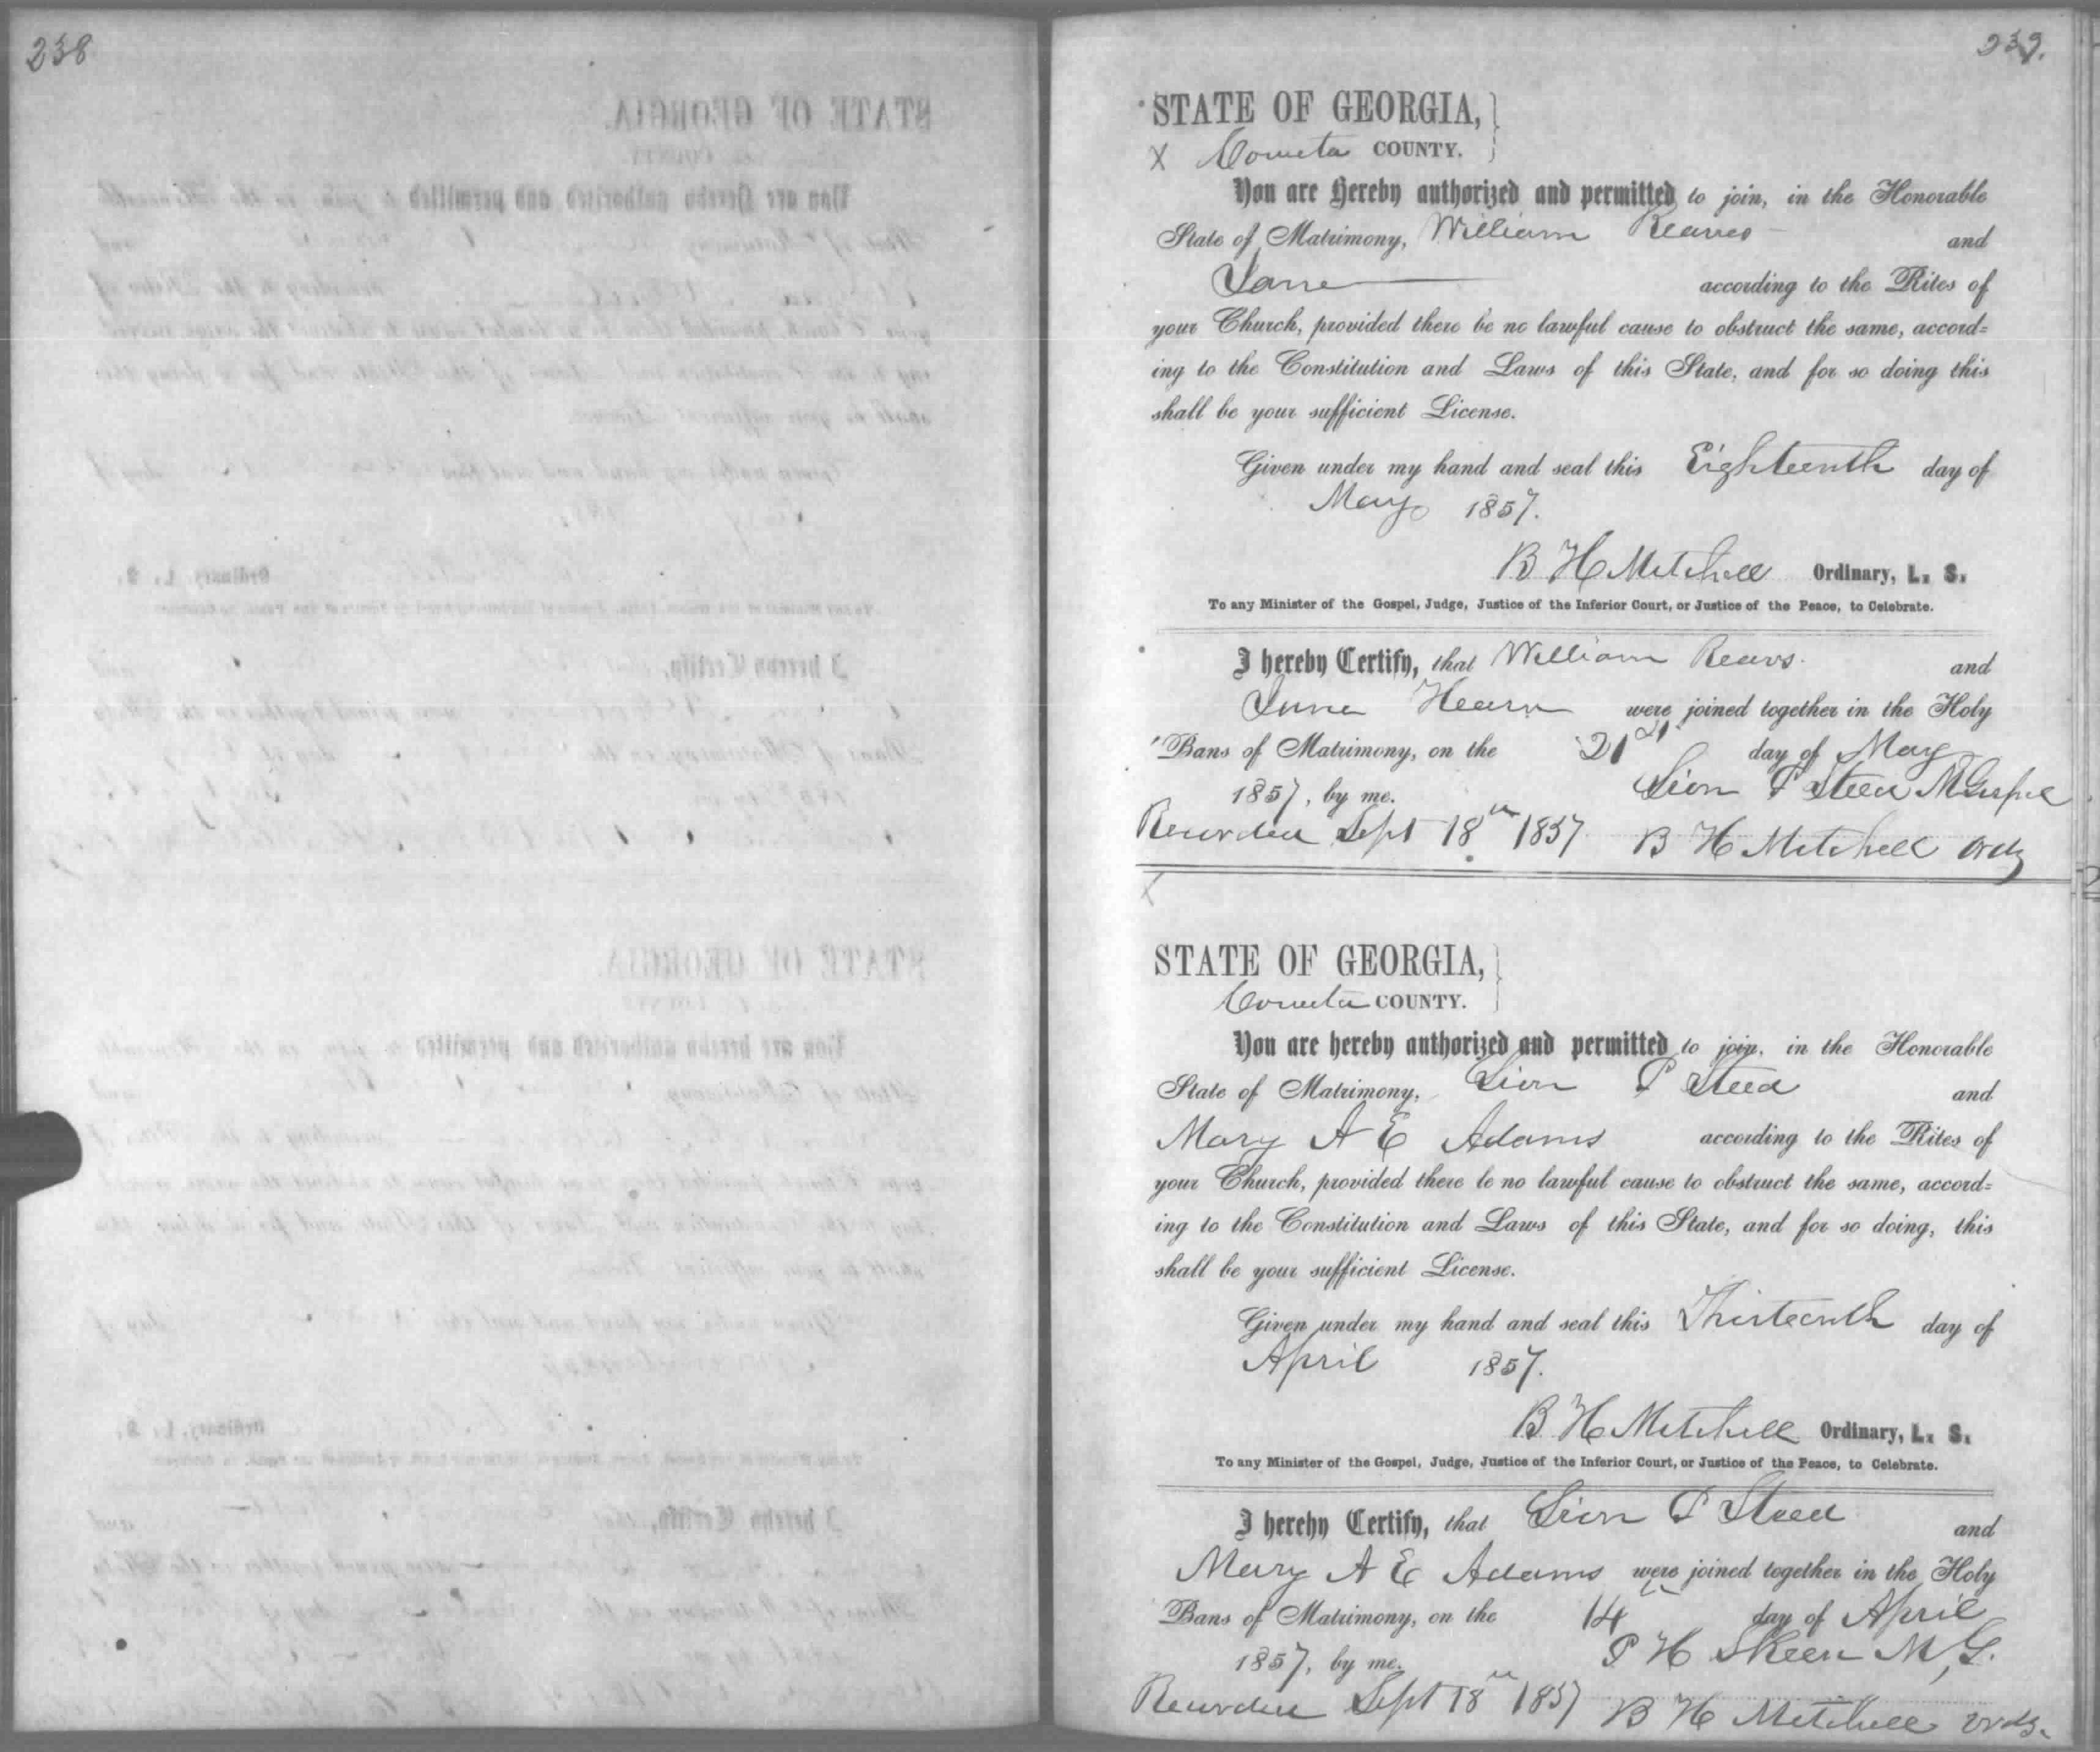 238
239.
STATE OF GEORGIA,
X Coweta COUNTY.
You are Hereby authorized and permitted to join, in the Honorable
State of Matrimony, William Reaves and
Jane according to the Rites of
your Church, provided there be no lawful cause to obstruct the same, accord=
ing to the Constitution and Laws of this State, and for so doing this
shall be your sufficient License.
Given under my hand and seal this Eighteenth day of
May 1857.
B H Mitchell Ordinary, L. S.
To any Minister of the Gospel, Judge, Justice of the Inferior Court, or Justice of the Peace, to Celebrate.
I hereby Certify, that William Reavs and
Jane Hearn were joined together in the Holy
Bans of Matrimony, on the 21st day of May
1857, by me. Sion P Steed M Gospel
Recorded Sept 18th 1857 B H Mitchell Ordy
X
STATE OF GEORGIA,
Coweta COUNTY.
You are hereby authorized and permitted to join, in the Honorable
State of Matrimony, Sion P Steed and
Mary A E Adams according to the Rites of
your Church, provided there be no lawful cause to obstruct the same, accord=
ing to the Constitution and Laws of this State, and for so doing, this
shall be your sufficient License.
Given under my hand and seal this Thirteenth day of
April 1857.
B H Mitchell Ordinary, L. S.
To any Minister of the Gospel, Judge, Justice of the Inferior Court, or Justice of the Peace, to Celebrate.
I hereby Certify, that Sion P Steed and
Mary A E Adams were joined together in the Holy
Bans of Matrimony, on the 14 day of April
1857, by me. P H Skeen M, G.
Recorded Sept 18th 1857 B H Mitchell Ordy.